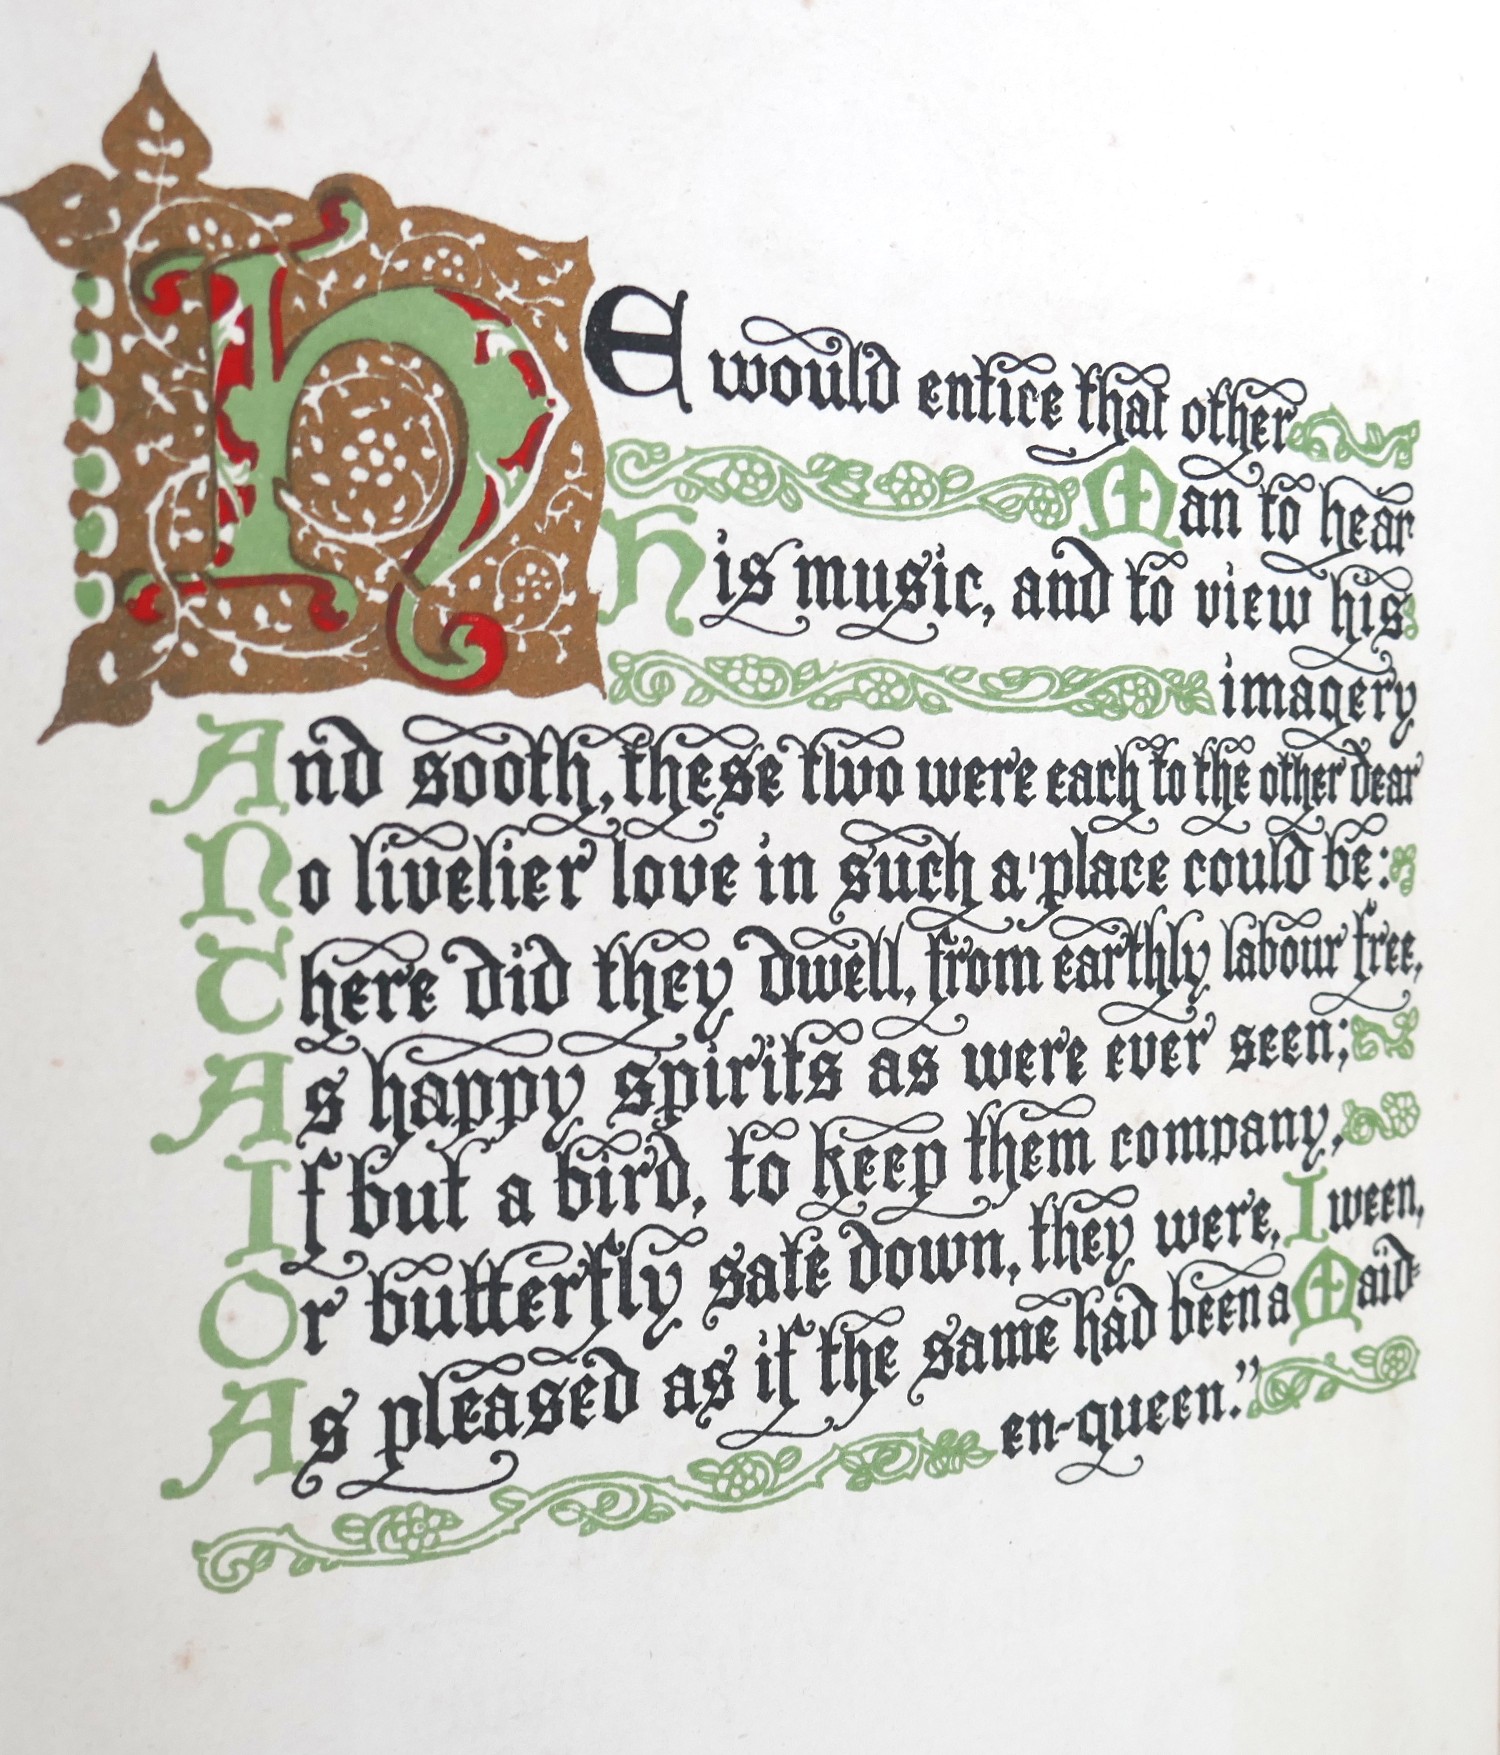 HE would entice that other
Man to hear
His music, and to view his
imagery
And sooth, these two were each to the other dear
No livelier love in such a place could be:
There did they dwell, from earthly labour free,
As happy spirits as were ever seen;
If but a bird, to keep them company,
Or butterfly sate down, they were, I ween,
As pleased as if the same had been a Maid-
en-queen."